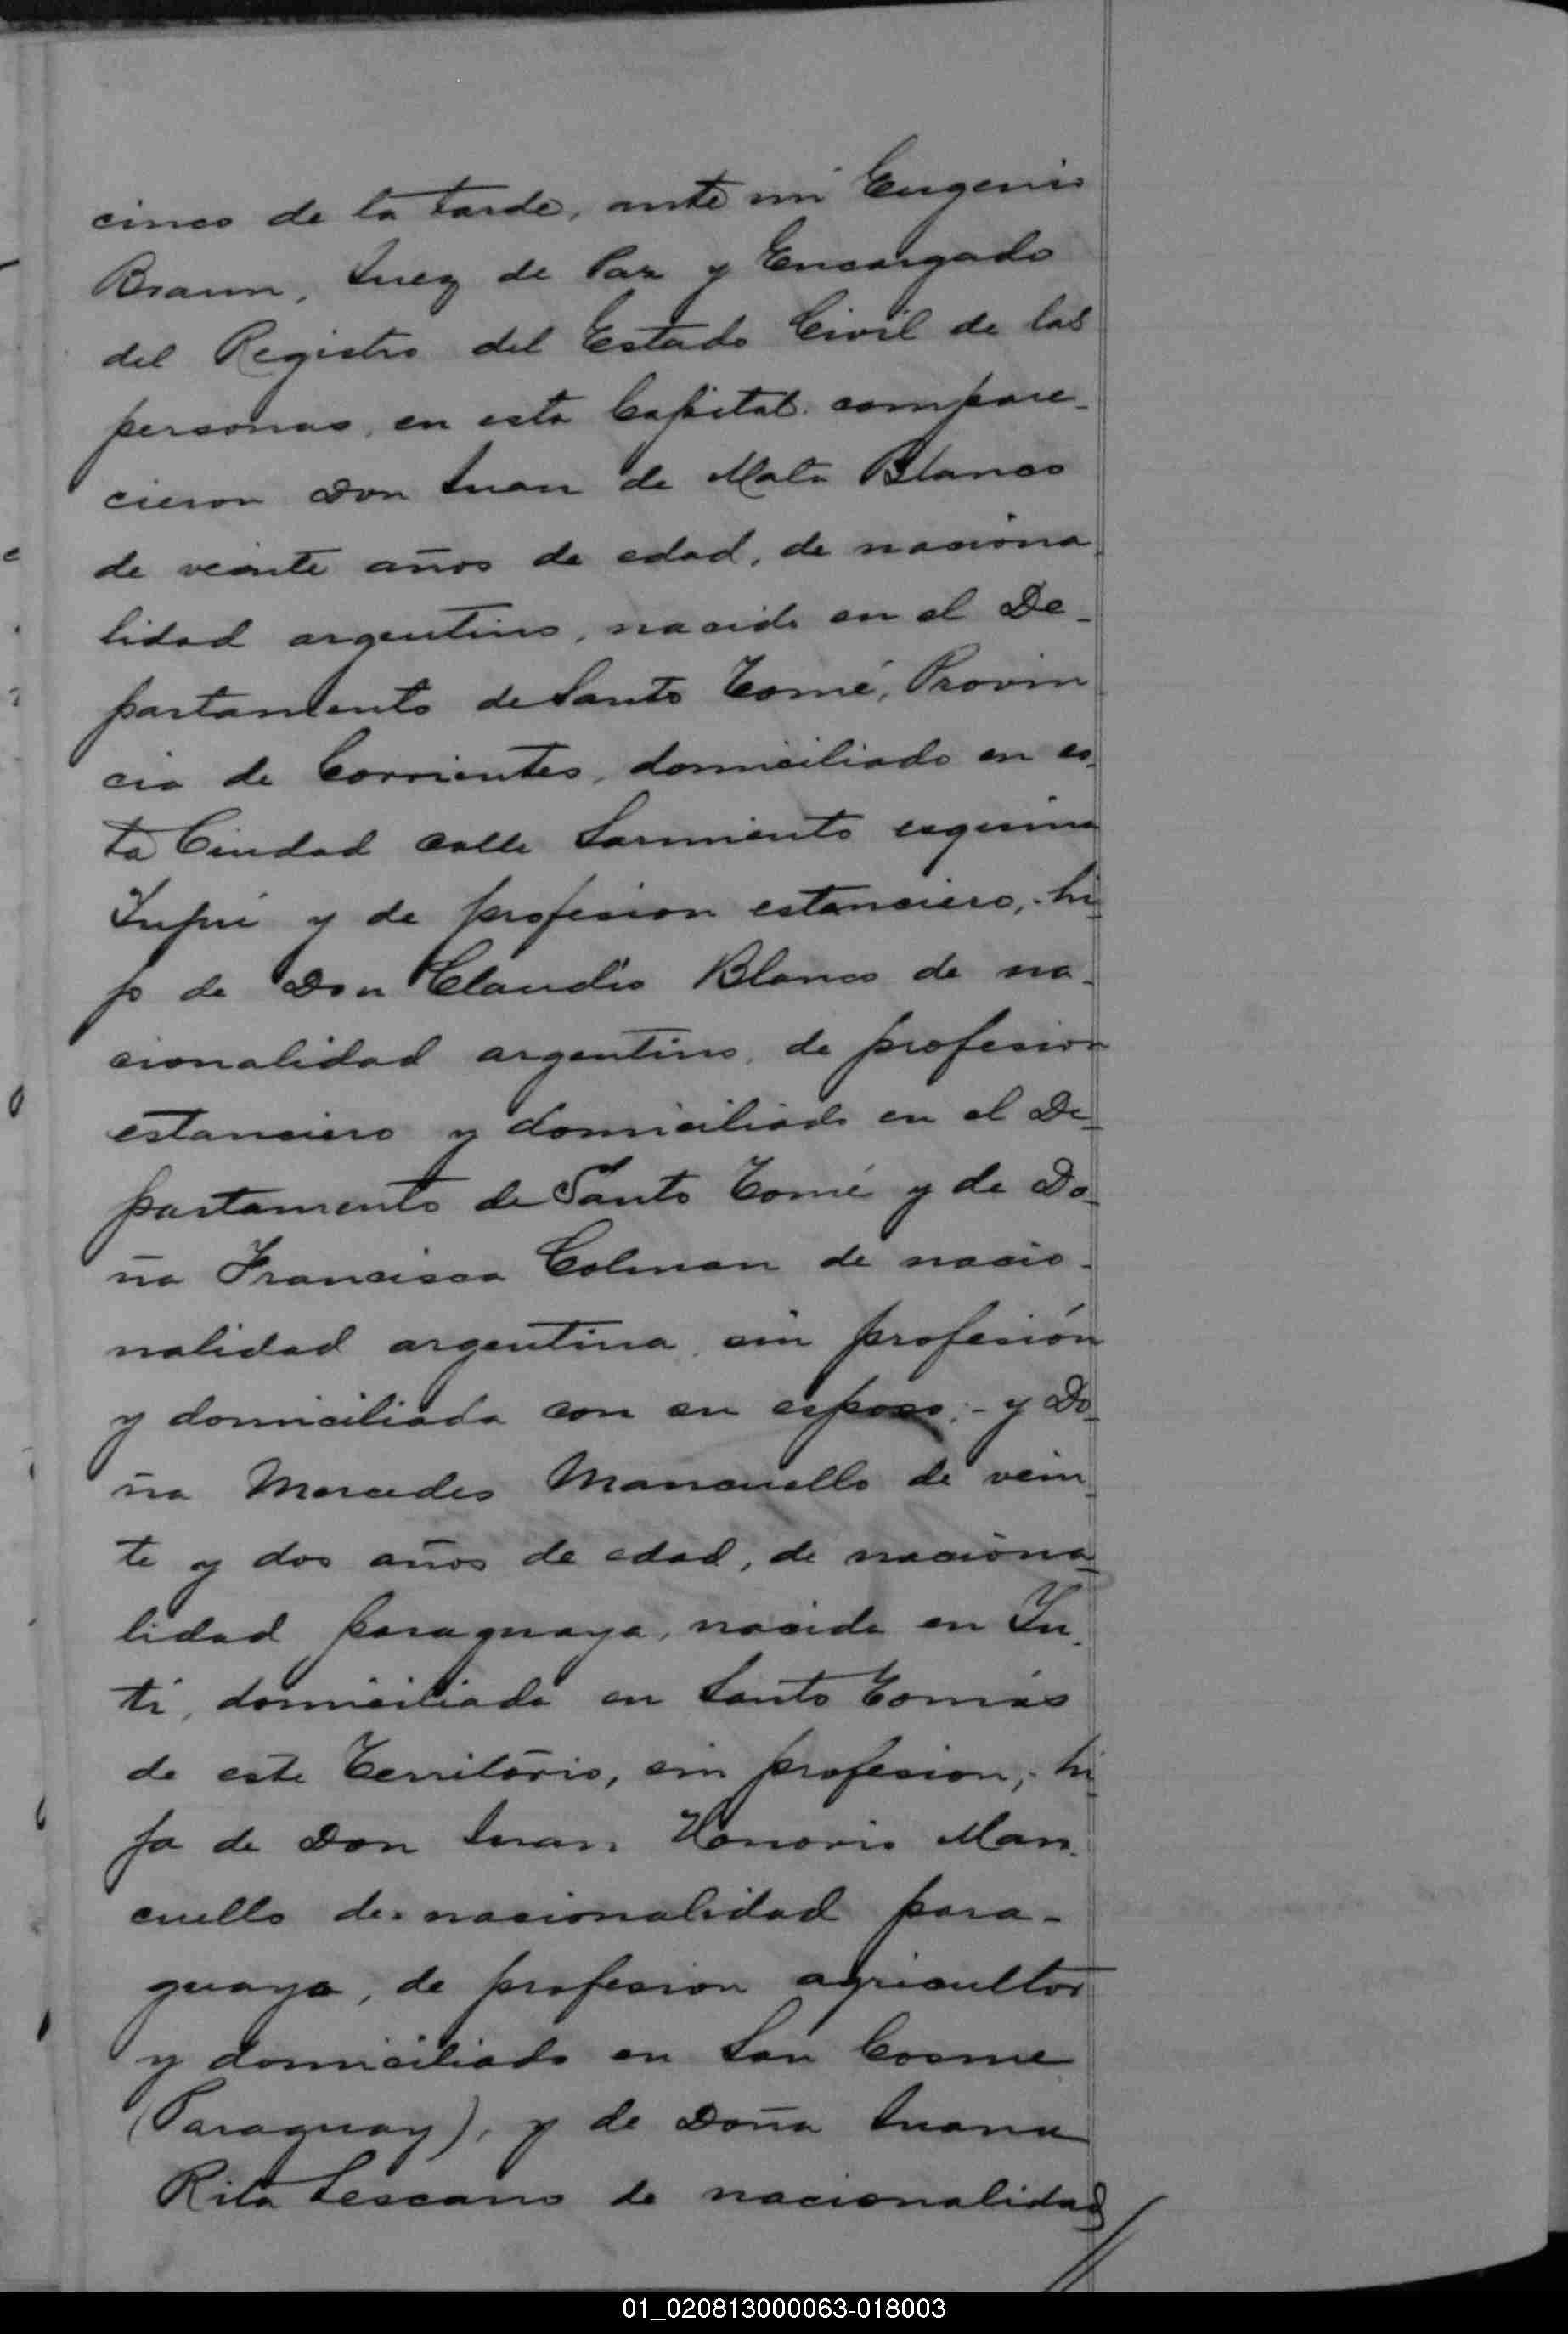 cinco de la tarde, ante mi Eugenio
Braum, Juez de Paz y Encargado
del Registro del Estado Civil de las
personas, en esta Capital. compare-
cieron Don Juan de Mata Blanco
de veinte años de edad, de naciona
lidad argentino, nacido en el De-
partamento de Santo Tomé, Provin
cia de Corrientes, domiciliado en es-
ta Ciudad calle Sarmiento esquina
y de profesion estanciero,- hi-
jo de Don Claudio Blanco de na-
cionalidad argentino, de profesion
estanciero y domiciliado en el De-
partamento de Santo Tomé y de Do-
ña Francisca Colman de nacio-
nalidad argentina, sin profesión
y domiciliada con su esposo;- y Do-
ña Mercedes Mancuello de vein-
te y dos años de edad, de naciona-
lidad paraguaya, nacida en Yu-
ti, domiciliada en Santo Tomás
de este Territorio, sin profesion,- hi-
ja de Don Juan Honorio Man-
cuello de nacionalidad para-
guaya, de profesion agricultor
y domiciliado en San Cosme
(Paraguay), y de Doña Juana
Rita Lescano de nacionalidad
01_020813000063-018003